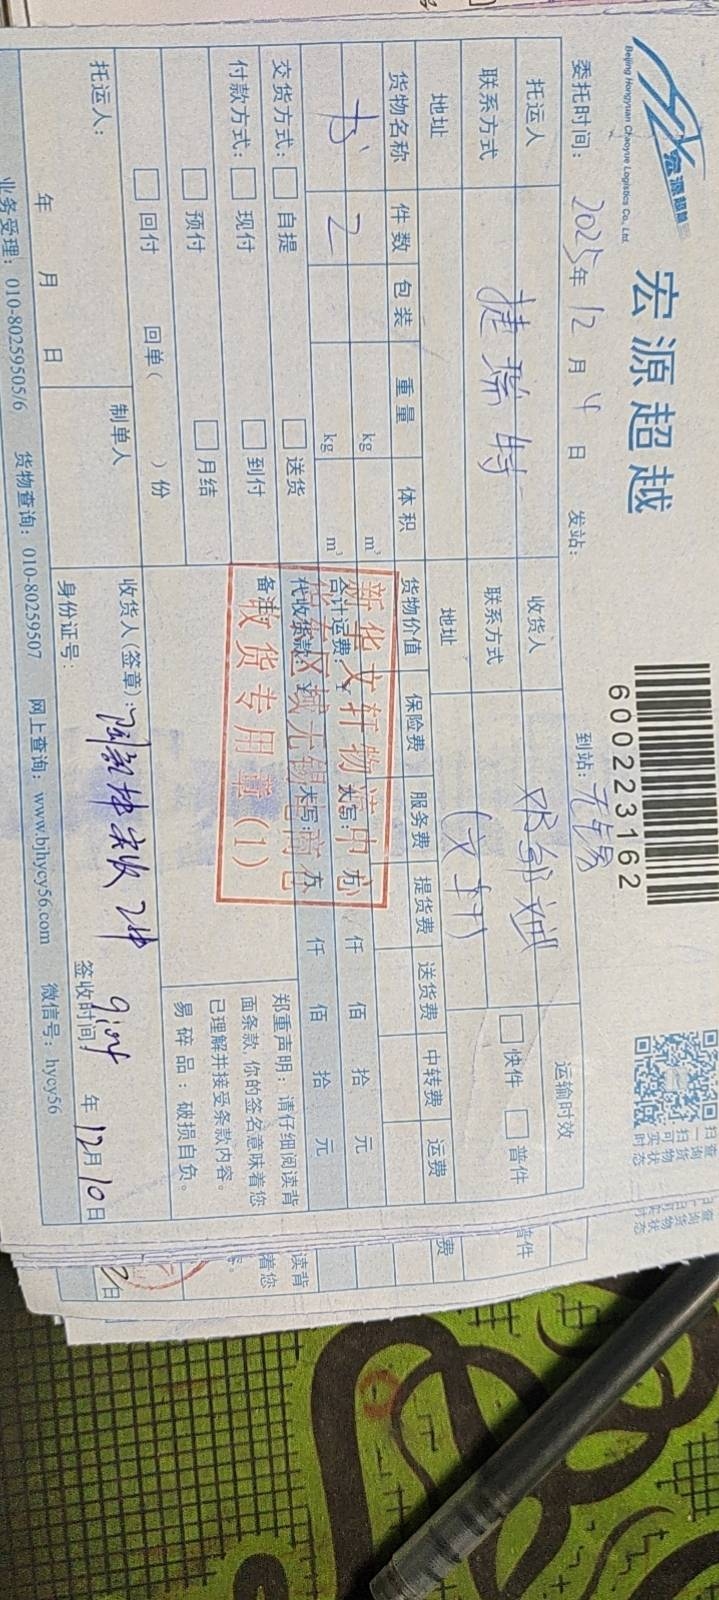 宏源超越
Beijing Hongyuan Chaoyue Logistics Co., Ltd.
宏源超越
600223162
扫一扫
查询货物
可实时状态
委托时间： 2025年 12月 4日 发站： 到站：无锡
托运人 捷瑞特 收货人 运输时效
联系方式 联系方式 (文轩) □快件 □普件
地址 地址
货物名称 件数 包装 重量 体积 货物价值 保险费 服务费 提货费 送货费 中转费 运费
书 2 kg m³ 合计运费： 大写： 万 仟 佰 拾 元
kg m³ 代收货款： 大写： 万 仟 佰 拾 元
交货方式：□自提 □送货 备注：
付款方式：□现付 □到付
□预付 □月结
□回付 回单( )份
新华文轩物流中心
收货专用章(1)
郑重声明：请仔细阅读背
面条款，你的签名意味着您
已理解并接受条款内容。
易碎品：破损自负。
托运人： 制单人 收货人(签章)： 实收2件
年 月 日 身份证号： 签收时间： 年 12月 10日
业务受理：010-80259505/6 货物查询：010-80259507 网上查询：www.bjhycy56.com 微信号：hycy56